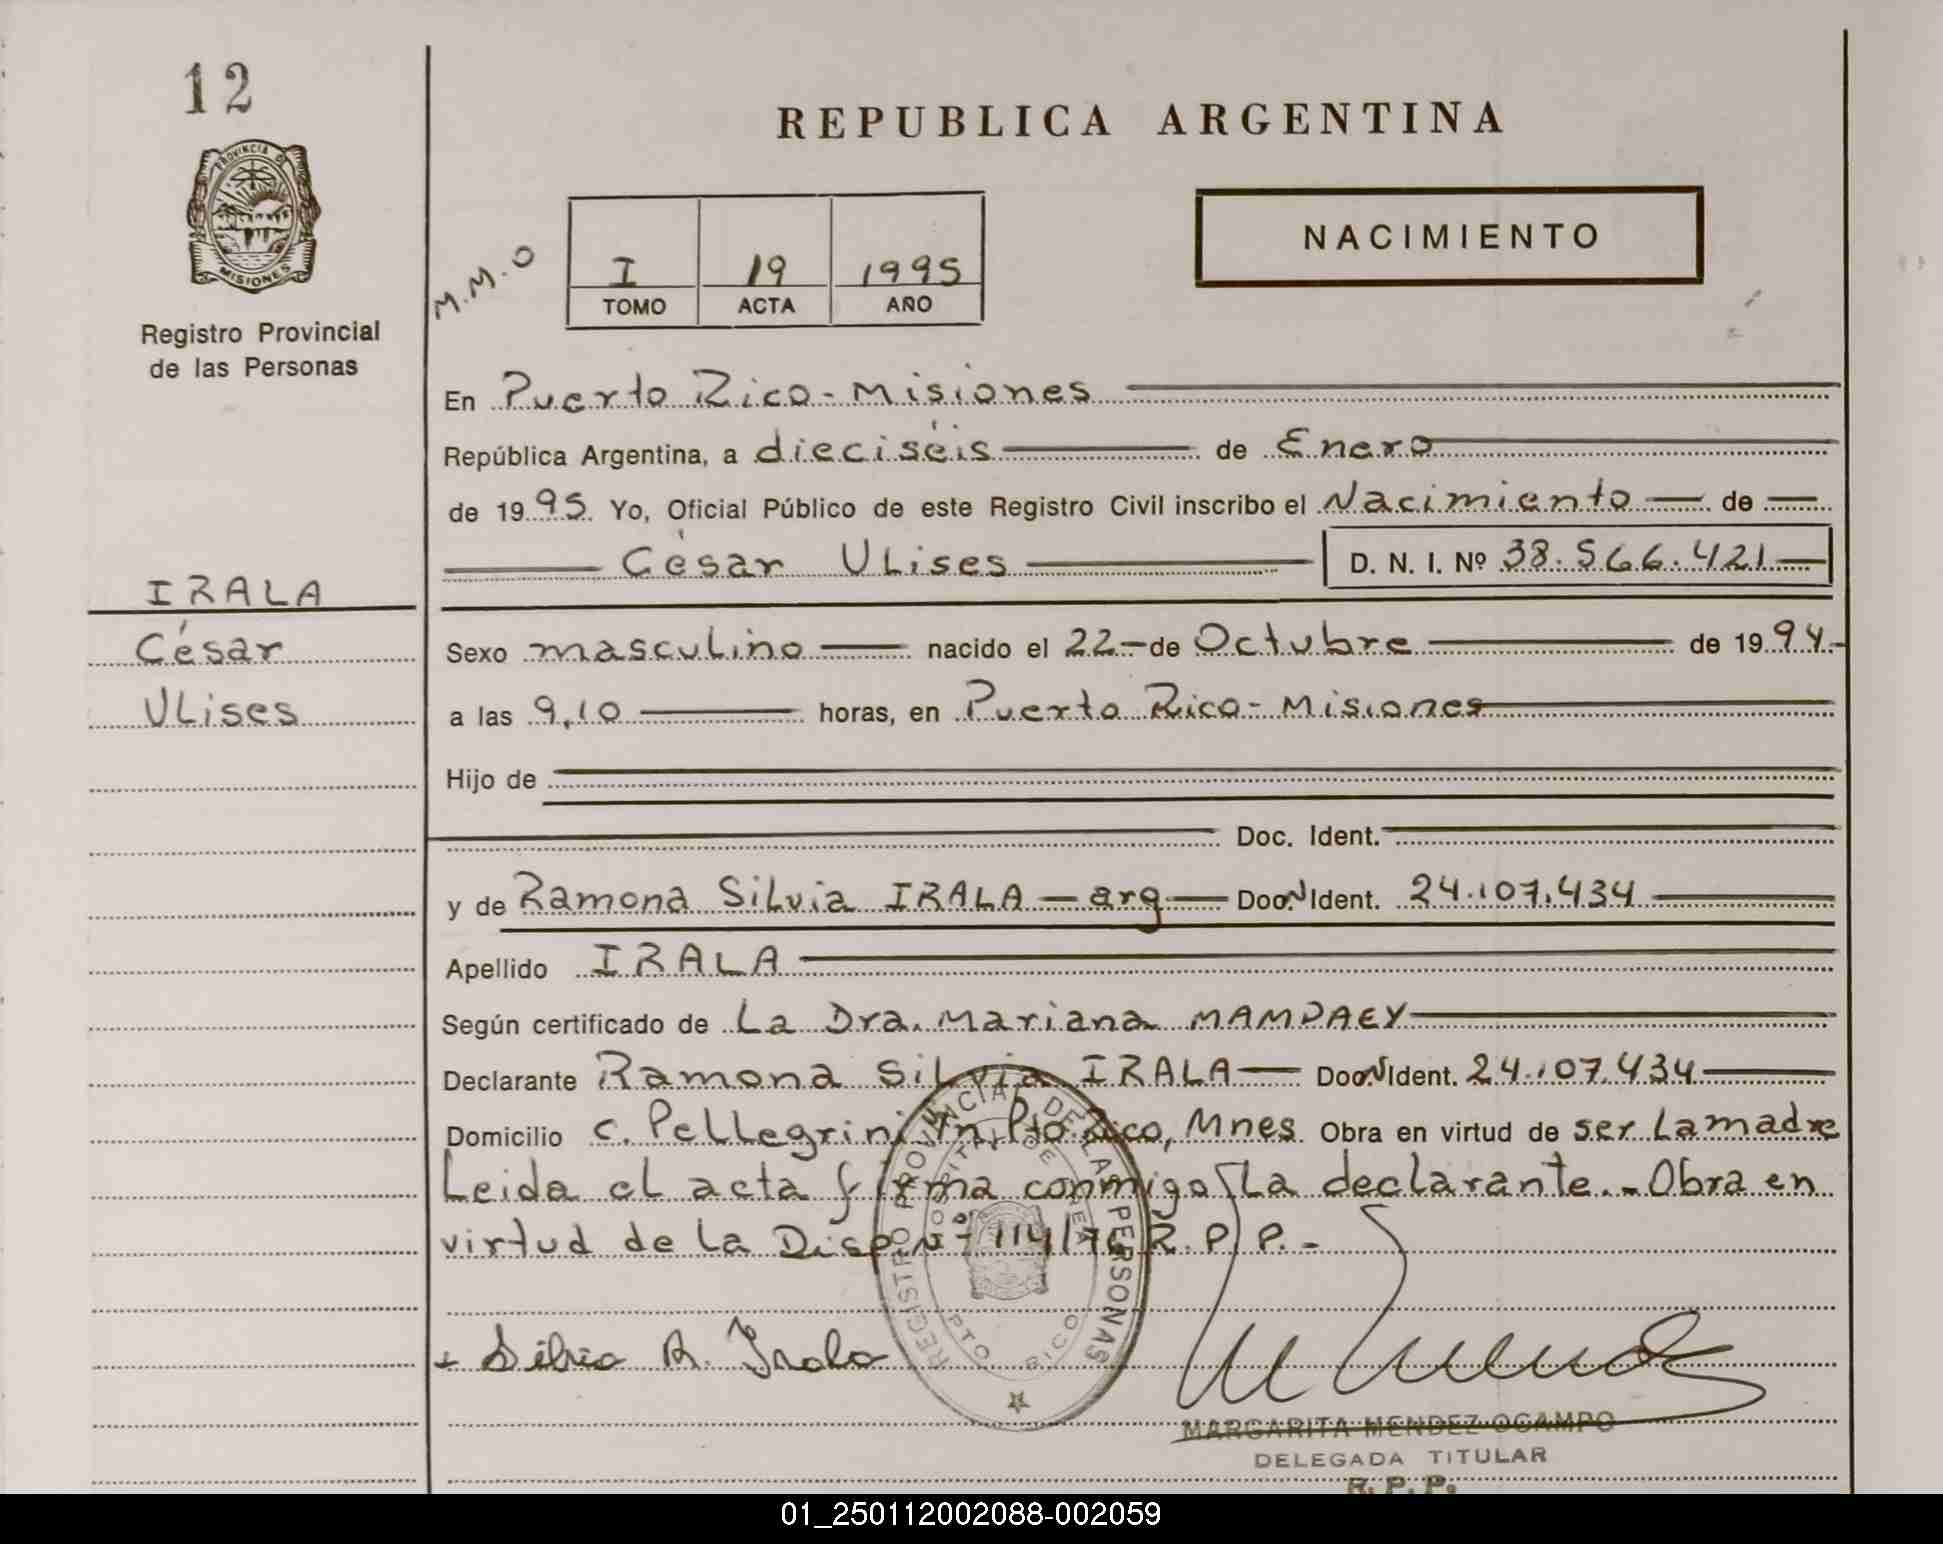 12
PROVINCIA DE
MISIONES
Registro Provincial
de las Personas
REPUBLICA ARGENTINA
NACIMIENTO
M.M.O
I 19 1995
TOMO ACTA AÑO
En Puerto Rico - Misiones
República Argentina, a dieciséis de Enero
de 1995. Yo, Oficial Público de este Registro Civil inscribo el Nacimiento de
César Ulises D. N. I. Nº 38.566.421
IRALA
César
Ulises
Sexo masculino nacido el 22 de Octubre de 1994
a las 9,10 horas, en Puerto Rico - Misiones
Hijo de
Doc. Ident.
y de Ramona Silvia IRALA - arg Ident. 24.107.434
Apellido IRALA
Según certificado de La Dra. Mariana MAMPAEY
Declarante Ramona Silvia IRALA Ident. 24.107.434
Domicilio C. Pellegrini Pto. Rico, Mnes. Obra en virtud de ser La madre
Leida el acta firma conmigo La declarante. - Obra en
virtud de la Disp. Nº 114/76 R.P.P. -
REGISTRO PROVINCIAL DE LAS PERSONAS
PTO RICO
Silvia R. Irala
MARGARITA MENDEZ OCAMPO
DELEGADA TITULAR
R. P. P.
01_250112002088-002059